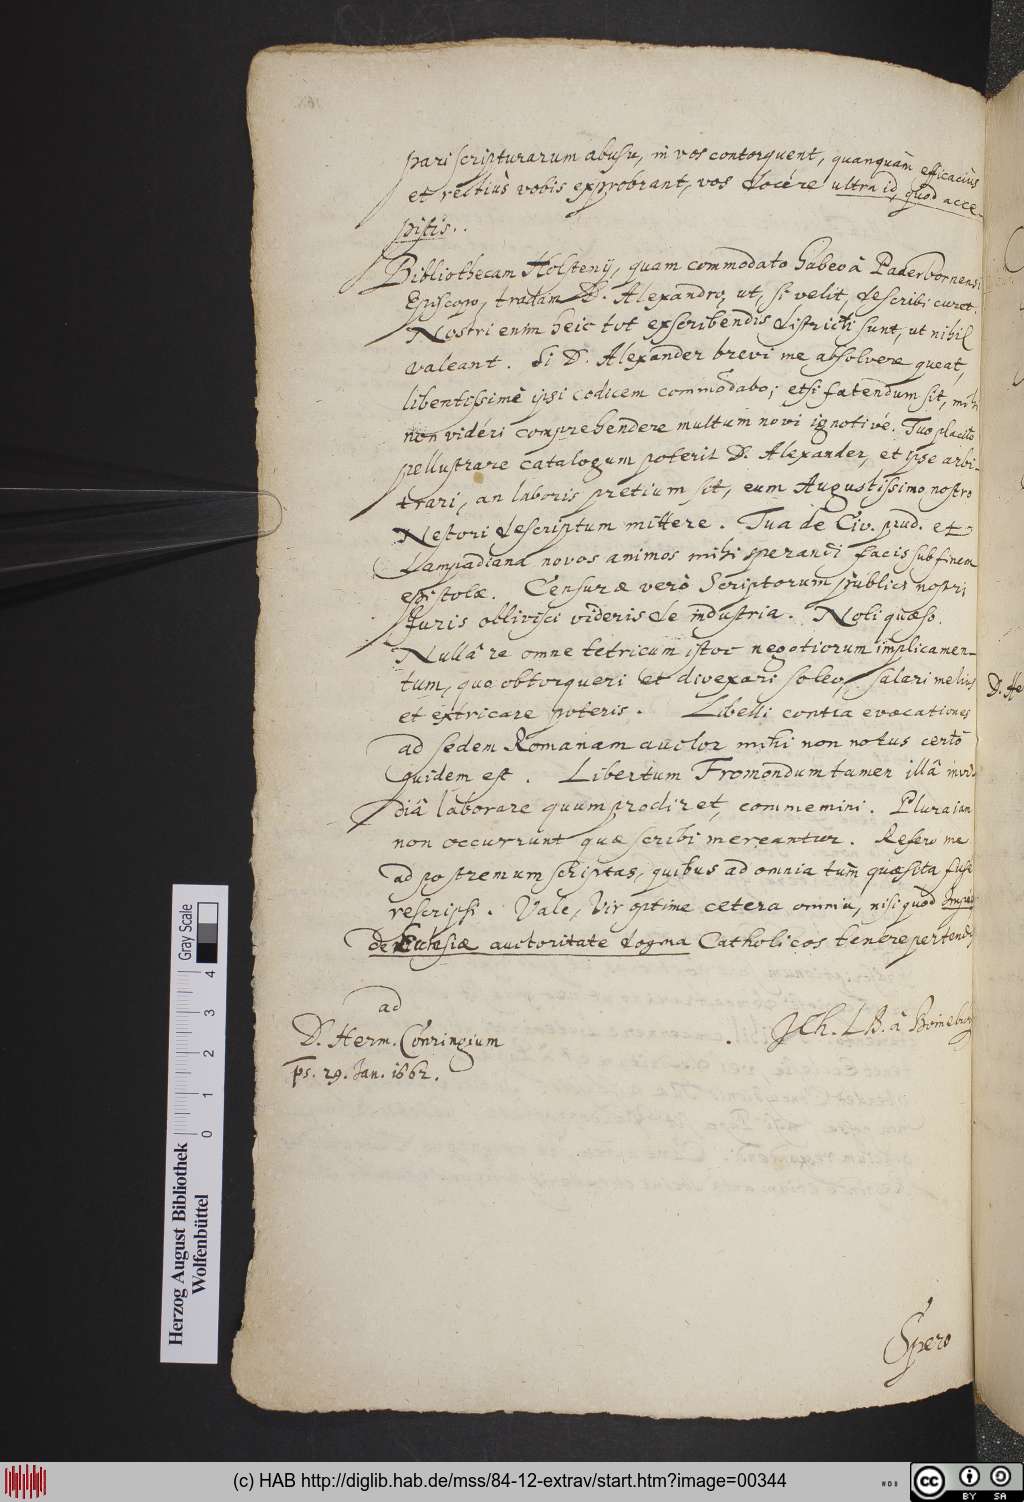 pari scripturarum abusu, in vos contorquent, quanquàm efficaciùs
et rectiùs vobis exprobrant, vos docére ultra id, quod acce-
pistis..
Bibliothecam Holstenij, quam commodato habeo â Paderbornensi
Episcopo, tradam D. Alexandro, ut, si velit, describi curet.
Nostri enim heic tot exscribendis districti sunt, ut nihil
valeant. Si D. Alexander brevi me absolvere queat,
libentissimè ipsi codicem commodabo; etsi fatendum sit, mihi
non vidéri comprehendere multum novi ignotivé. Tuo placito
pellustrare catalogum poterit D. Alexander, et ipse arbi-
trari, an laboris pretium sit, eum Augustissimo nostro
Nestori descriptum mittere. Tua de Civ. prud. et
Lampadiana novos animos mihi sperandi facis sub finem
epistolæ. Censuræ verò Scriptorum publici nostri
Juris oblivisci videris de industria. Noli quæso.
Nullâ re omne tetricum istoc negotiorum implicamen-
tum, quo obtorqueri et divexari soleo, salari melius
et extricare poteris. Libelli contra evocationes
ad sedem Romanam auctor mihi non notus certò
quidem est. Libertum Fromondum tamen illâ invi-
diâ laborare quum prodiret, commemini. Plura jam
non occurrunt quæ scribi mereantur. Refero me
ad postremum scriptas, quibus ad omnia tum quæsita fuse
rescripsi. Vale, Vir optime cetera omnia, nisi quod
de Ecclesiæ auctoritate dogma Catholicos tenere pertendis
Joh. L B. â Boineburg
ad
D. Herm. Conringium
ps. 29. Jan. 1662.
Spero
D. He
Gray Scale
0 1 2 3 4
Herzog August Bibliothek
Wolfenbüttel
(c) HAB http://diglib.hab.de/mss/84-12-extrav/start.htm?image=00344
cc BY SA